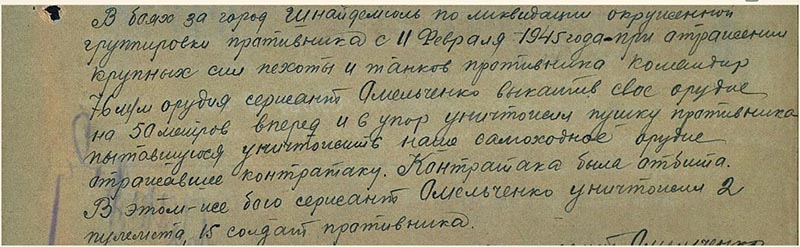 В боях за город Шнайдемюль по ликвидации окруженной
группировки противника с 11 февраля 1945 года при отражении
крупных сил пехоты и танков противника командир
76 м/м орудия сержант Омельченко выкатив свое орудие
на 50 метров вперед и в упор уничтожил пушку противника
пытавшуюся уничтожить наше самоходное орудие
отражавшее контратаку. Контратака была отбита.
В этом-же бою сержант Омельченко уничтожил 2
пулемета, 15 солдат противника.